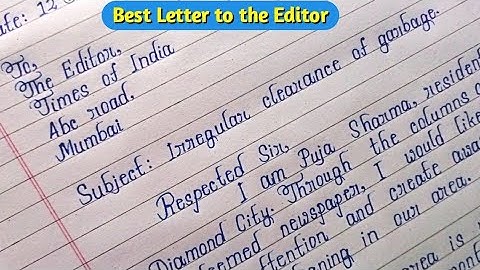 Best Letter to the Editor
To,
The Editor,
Times of India
Abc road,
Mumbai
Subject: Irregular clearance of garbage.
Respected Sir,
I am Puja Sharma, resident
Diamond City. Through the columns
newspaper, I would like
and create
in our area.
area is